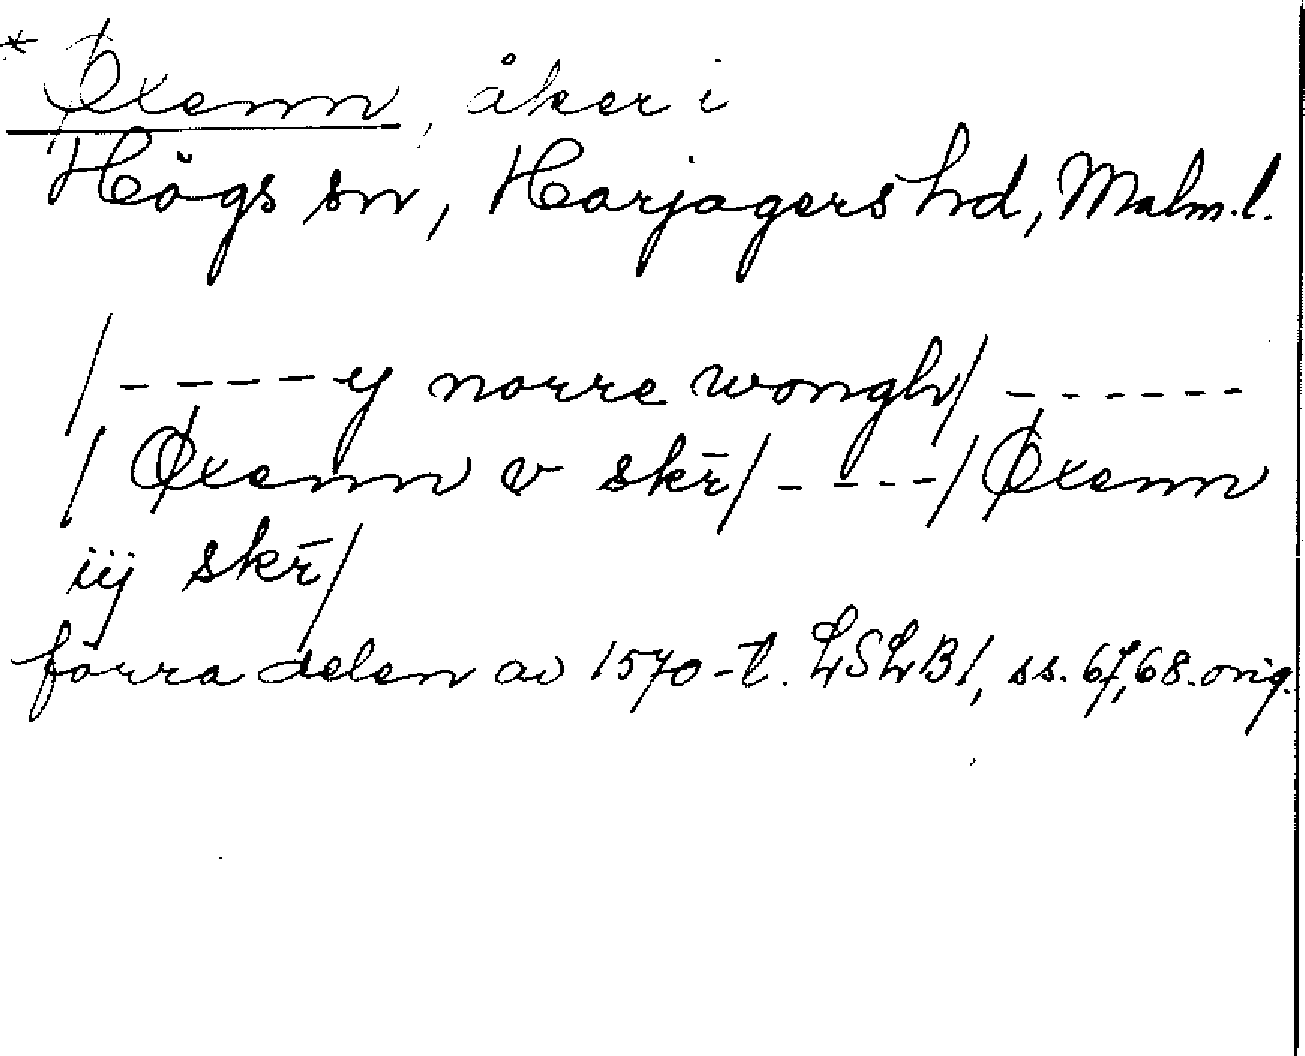 * Øxenn, åker i
Högs sn, Harjagers hd, Malm.l.
/----- y norre wongh/ ------
/ Øxenn v skr̄/ - ----/ Øxenn
iij skr̄/
förra delen av 1570-t. LSLB1, ss. 67,68. orig.